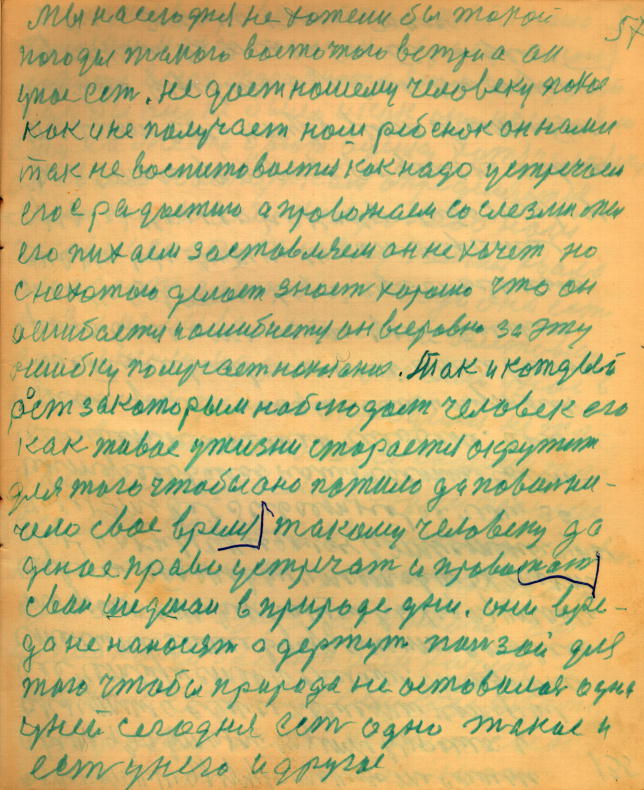 57
Мы насегодня не хотели бы такой
погоды такого восточого ветра а он
унас ест. не дает нашему человеку покоя
как и не получает наш ребенок он нами
так не воспитовается как надо устречаем
его с радостию а провожаем со слезами
его пихаем заставляем он не хочет но
с нехотою делает знает хорошо что он
ошибается и ошибнется он всеровно за эту
ошибку получает наказания. Так и каждый
рост за которым наблюдает человек его
как живое ужизни старается окружит
для того чтобы оно пожило да поволни-
чело свое время такому человеку да
деное право устречат и провожат
сваи идущаи в природе дни. они вре-
да не наносят а держут ползой для
того чтобы природа не оставалас одна
уней сегодня ест одно такое и
ест унего и другое